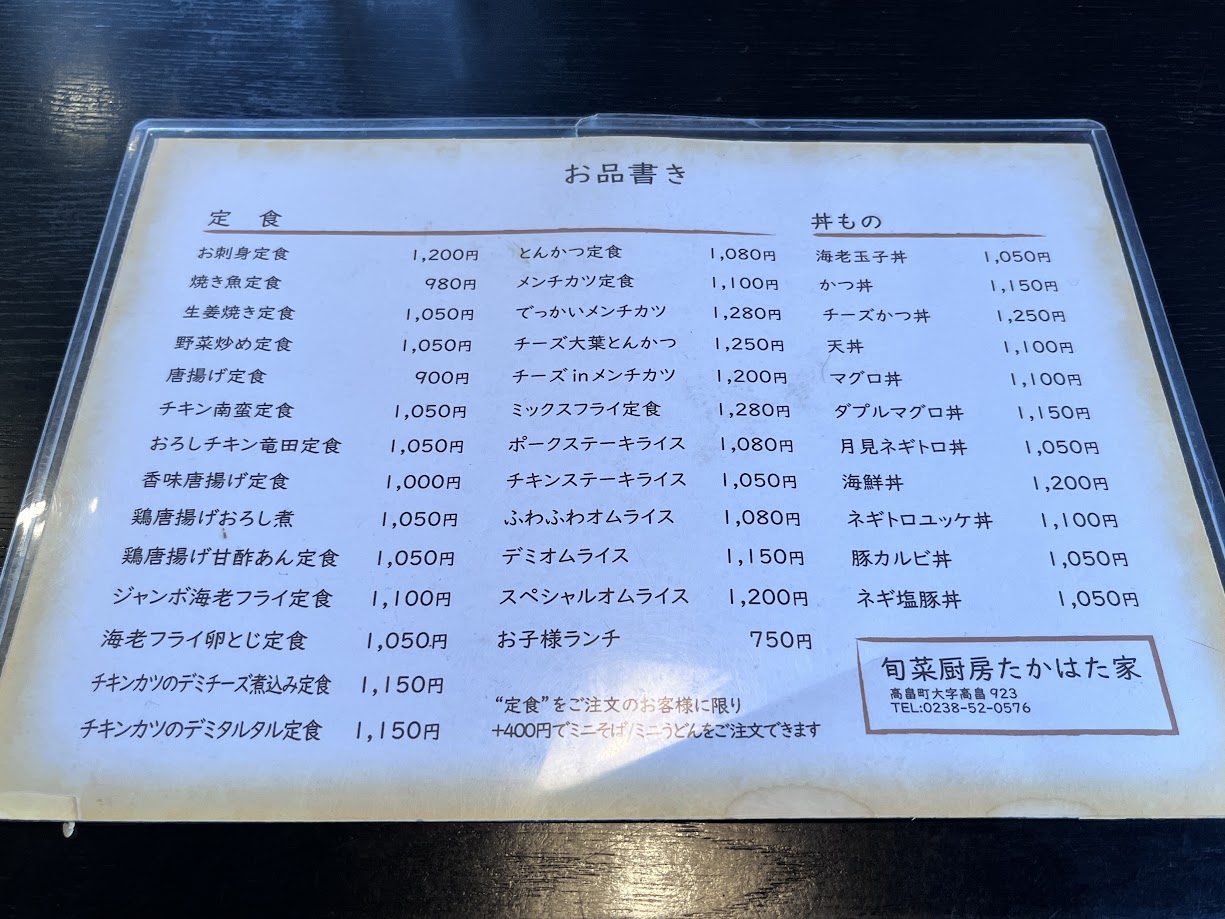 お品書き
定 食
お刺身定食 1,200円
焼き魚定食 980円
生姜焼き定食 1,050円
野菜炒め定食 1,050円
唐揚げ定食 900円
チキン南蛮定食 1,050円
おろしチキン竜田定食 1,050円
香味唐揚げ定食 1,000円
鶏唐揚げおろし煮 1,050円
鶏唐揚げ甘酢あん定食 1,050円
ジャンボ海老フライ定食 1,100円
海老フライ卵とじ定食 1,050円
チキンカツのデミチーズ煮込み定食 1,150円
チキンカツのデミタルタル定食 1,150円
とんかつ定食 1,080円
メンチカツ定食 1,100円
でっかいメンチカツ 1,280円
チーズ大葉とんかつ 1,250円
チーズinメンチカツ 1,200円
ミックスフライ定食 1,280円
ポークステーキライス 1,080円
チキンステーキライス 1,050円
ふわふわオムライス 1,080円
デミオムライス 1,150円
スペシャルオムライス 1,200円
お子様ランチ 750円
“定食”をご注文のお客様に限り
+400円でミニそば/ミニうどんをご注文できます
丼もの
海老玉子丼 1,050円
かつ丼 1,150円
チーズかつ丼 1,250円
天丼 1,100円
マグロ丼 1,100円
ダブルマグロ丼 1,150円
月見ネギトロ丼 1,050円
海鮮丼 1,200円
ネギトロユッケ丼 1,100円
豚カルビ丼 1,050円
ネギ塩豚丼 1,050円
旬菜厨房たかはた家
高畠町大字高畠 923
TEL:0238-52-0576